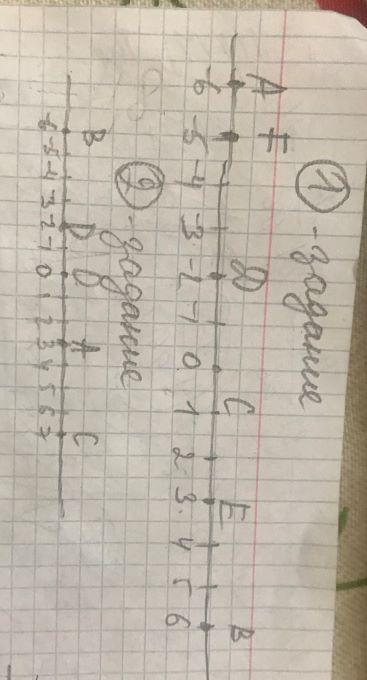 ① - задание
A F D C E B
-6 -5 -4 -3 -2 -1 0 1 2 3 4 5 6
② - задание
B D O A C
-6 -5 -4 -3 -2 -1 0 1 2 3 4 5 6 7